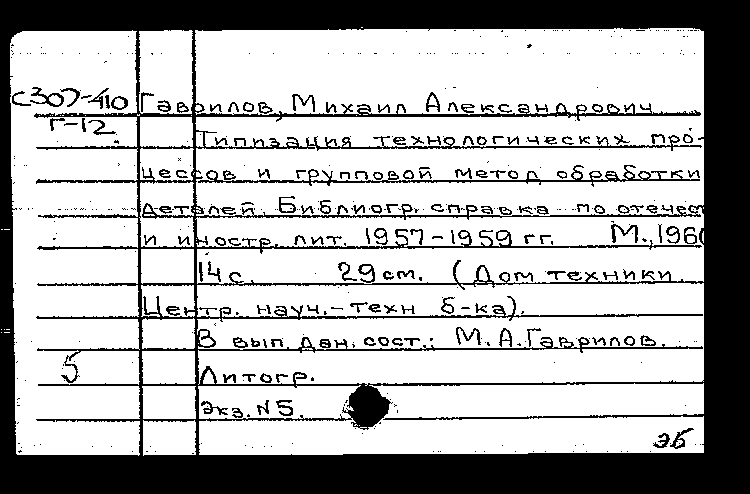 С307-410 Гаврилов, Михаил Александрович
Г-12.
Типизация технологических про-
цессов и групповой метод обработки
деталей. Библиогр. справка по отечест
и иностр. лит. 1957-1959 гг. М., 1960
14 с. 29 см. (Дом техники.
Центр. науч.-техн б-ка).
В вып. дан. сост.: М.А.Гаврилов.
5 Литогр.
Экз. N 5.
эб